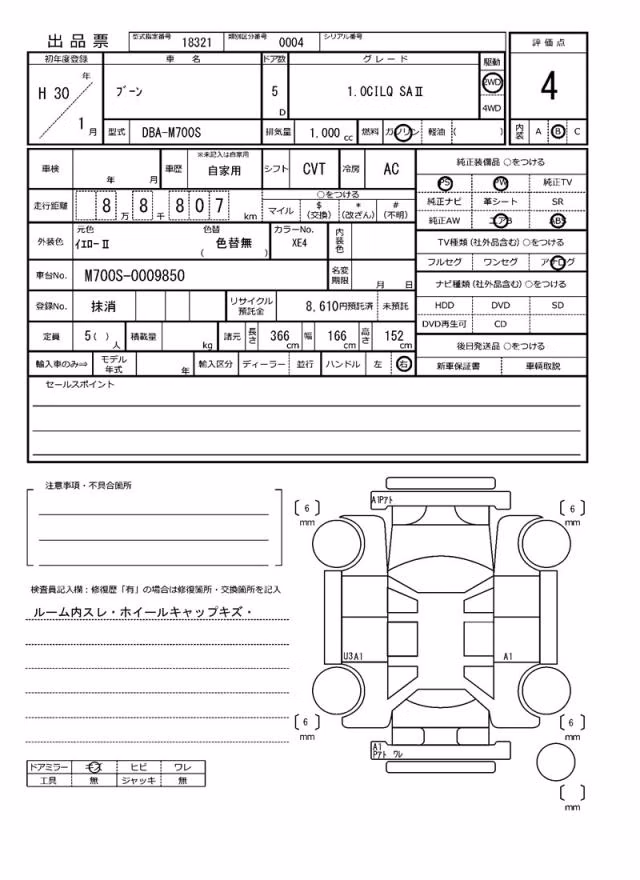 出品票
型式指定番号 18321 類別区分番号 0004 シリアル番号
評価点
4
初年度登録 車名 ドア数 グレード 駆動
H 30 年 1 月
ブーン
5 D
1.0CILQ SAⅡ
2WD
4WD
型式 DBA-M700S 排気量 1.000 cc 燃料 ガソリン 軽油 ( )
内装 A B C
車検 年 月 車歴 ※未記入は自家用 自家用 シフト CVT 冷房 AC
走行距離 8万 8千 807 km
○をつける
マイル $(交換) *(改ざん) #(不明)
外装色 元色 イエローⅡ 色替 ( 色替無 ) カラーNo. XE4 内装色
車台No. M700S-0009850 名変期限 月 日
登録No. 抹消 リサイクル預託金 8,610円預託済 未預託
定員 5( )人 積載量 kg 諸元 長さ 366 cm 幅 166 cm 高さ 152 cm
輸入車のみ⇒ モデル年式 年 輸入区分 ディーラー 並行 ハンドル 左 右
純正装備品 ○をつける
PS PW 純正TV
純正ナビ 革シート SR
純正AW エアB ABS
TV種類(社外品含む)○をつける
フルセグ ワンセグ アナログ
ナビ種類(社外品含む)○をつける
HDD DVD SD
DVD再生可 CD
後日発送品 ○をつける
新車保証書 車輌取説
セールスポイント
注意事項・不具合箇所
検査員記入欄:修復歴「有」の場合は修復箇所・交換箇所を記入
ルーム内スレ・ホイールキャップキズ・
ドアミラー キズ ヒビ ワレ
工具 無 ジャッキ 無
A1Pアト
6 mm
6 mm
U3A1
A1
6 mm
6 mm
A1
Pアト ワレ
mm